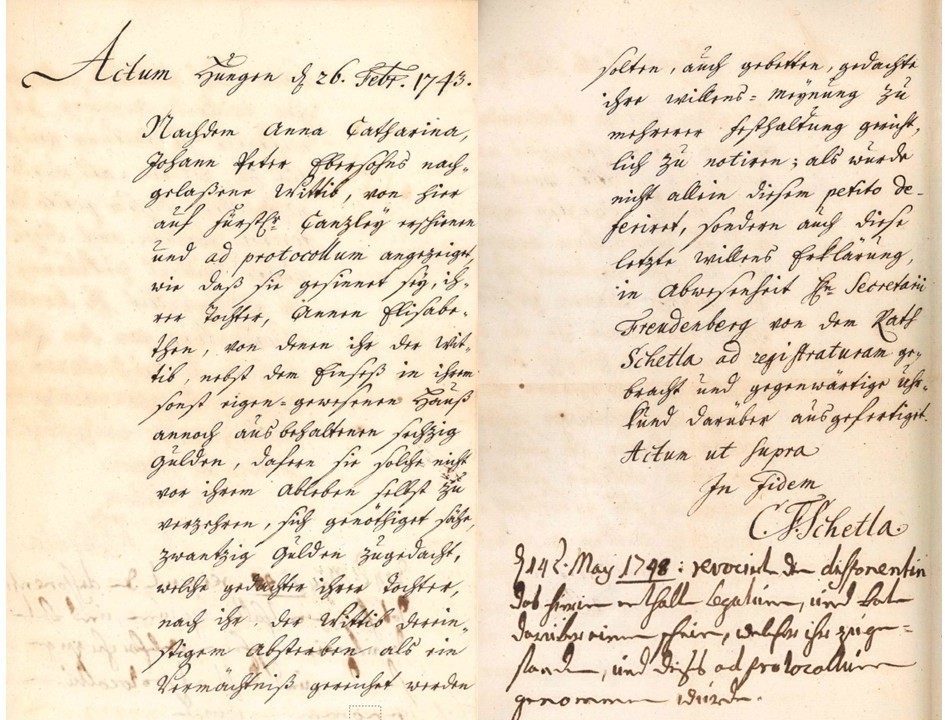 Actum Hungen d. 26. Febr. 1743.
Nachdem Anna Catharina,
Johann Peter Ebersohns nach-
gelaßene Wittib, von hier
auf Fürstl. Cantzley erschienen
und ad protocollum angezeiget,
wie daß sie gesinnet sey, ih-
rer Tochter, Annen Elisabe-
then, von denen ihr der Wit-
tib, nebst dem Einseß in ihrem
sonst eigen-gewesenen Hauß
annoch ausbehaltenen sechzig
Gulden, dafern sie solche nicht
vor ihrem Ableben selbst zu
verzehren, sich genöthiget sähe,
zwantzig Gulden zugedacht,
welche gedachter ihrer Tochter,
nach ihr der Wittib derein-
stigem Absterben als ein
Vermächtniß gereichet werden
solten, auch gebetten, gedachte
ihre willens-Meynung zu
mehrerer Festhaltung gericht-
lich zu notiren; als wurde
nicht allein diesem petito de-
feriret, sondern auch diese
letzte willens Erklärung,
in Abwesenheit Hn. Secretarii
Freudenberg von dem Rath
Schetla ad registraturam ge-
bracht und gegenwärtige Uhr-
kund darüber ausgefertiget.
Actum ut supra
In Fidem
C F Schetla
d. 14t. May 1748: revocirt die disponentin
das hierin enthalt. legatum, und bate
darüber einen schein, welcher ihr zuge-
standen, und dieß ad protocollum
genommen wurde.